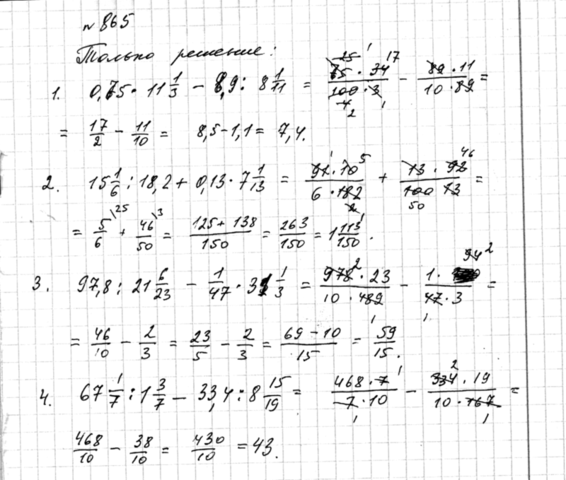 №865
Только решение:
1. 0,75·11 1/3 − 8,9 : 8 1/11 = 75·34/100·3 − 89·11/10·89 =
= 17/2 − 11/10 = 8,5−1,1 = 7,4.
2. 15 1/6 : 18,2 + 0,13·7 1/13 = 91·10/6·182 + 13·92/100·13 =
= 5/6 + 46/50 = 125+138/150 = 263/150 = 1 113/150.
3. 97,8 : 21 6/23 − 1/47·31 1/3 = 978·23/10·489 − 1·94/47·3 =
= 46/10 − 2/3 = 23/5 − 2/3 = 69−10/15 = 59/15.
4. 67 1/7 : 1 3/7 − 33,4 : 8 15/19 = 468·7/7·10 − 334·19/10·167 =
468/10 − 38/10 = 430/10 = 43.